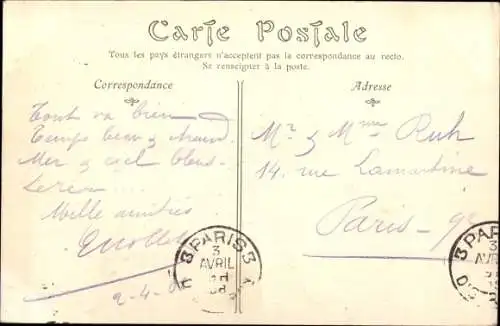 Carte Postale
Tous les pays étrangers n'acceptent pas le correspondance au recto.
Se renseigner à la poste.
Correspondance
Adresse
Tout va bien
Temps beau & chaud
Mer & ciel bleus
Mille amitiés
2-4-08
Mr & Mme Ruh
14. rue Lamartine
Paris - 9e
3 PARIS 3
3
AVRIL
08
3 PARIS
3